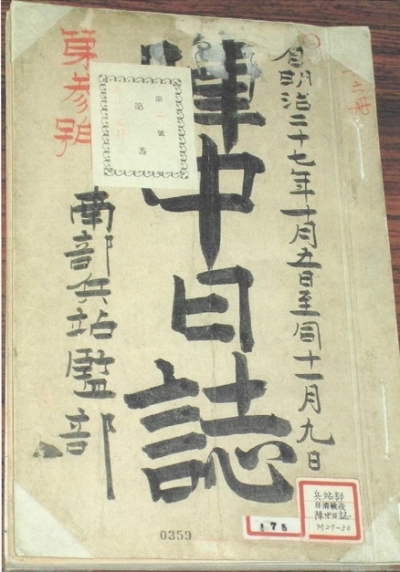 自明治二十七年十月五日至同十一月九日
陣中日誌
第参号
南部兵站監部
第 号
第 番
0359
178
兵站部
日清戦役
陣中日誌
M27-30